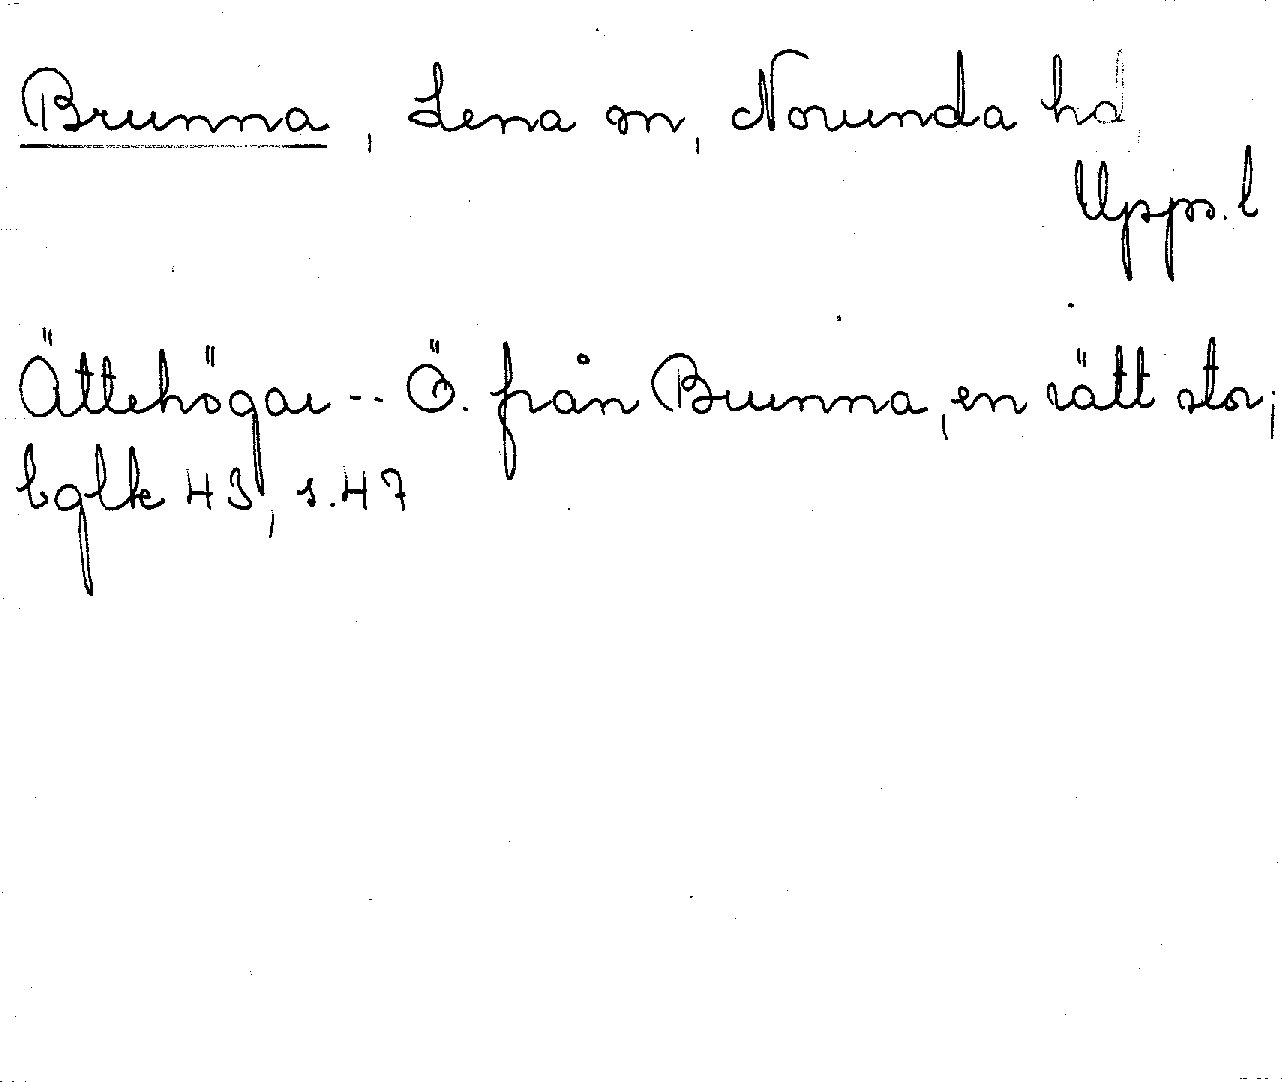 Brunna, Lena sn, Norunda hd,
Upps. l
Ättehögar -- Ö. från Brunna, en rätt stor;
bglk 43, s. 47